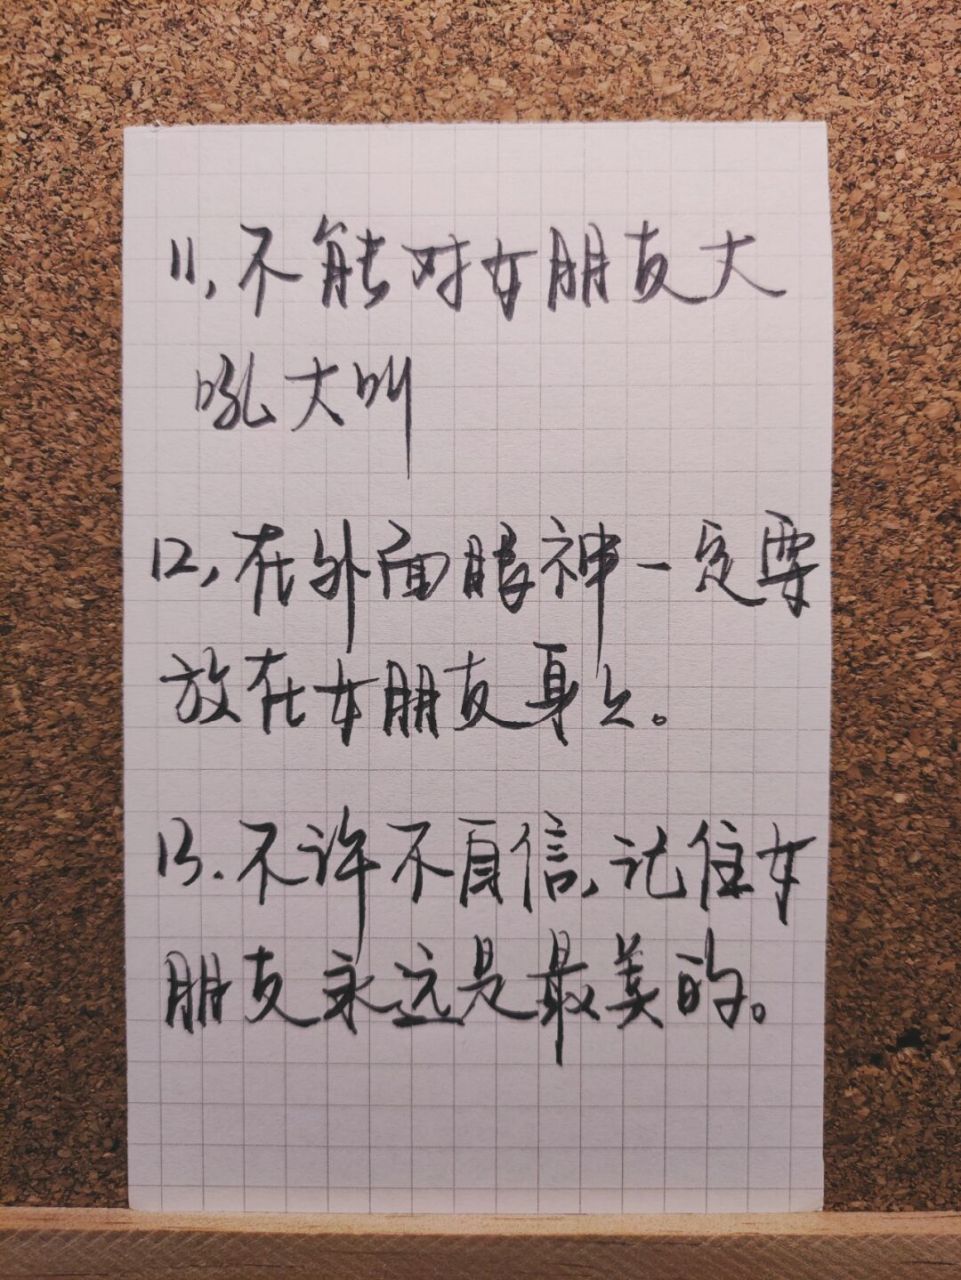 11,不能对女朋友大
吼大叫
12,在外面眼神一定要
放在女朋友身上。
13.不许不自信,记住女
朋友永远是最美的。